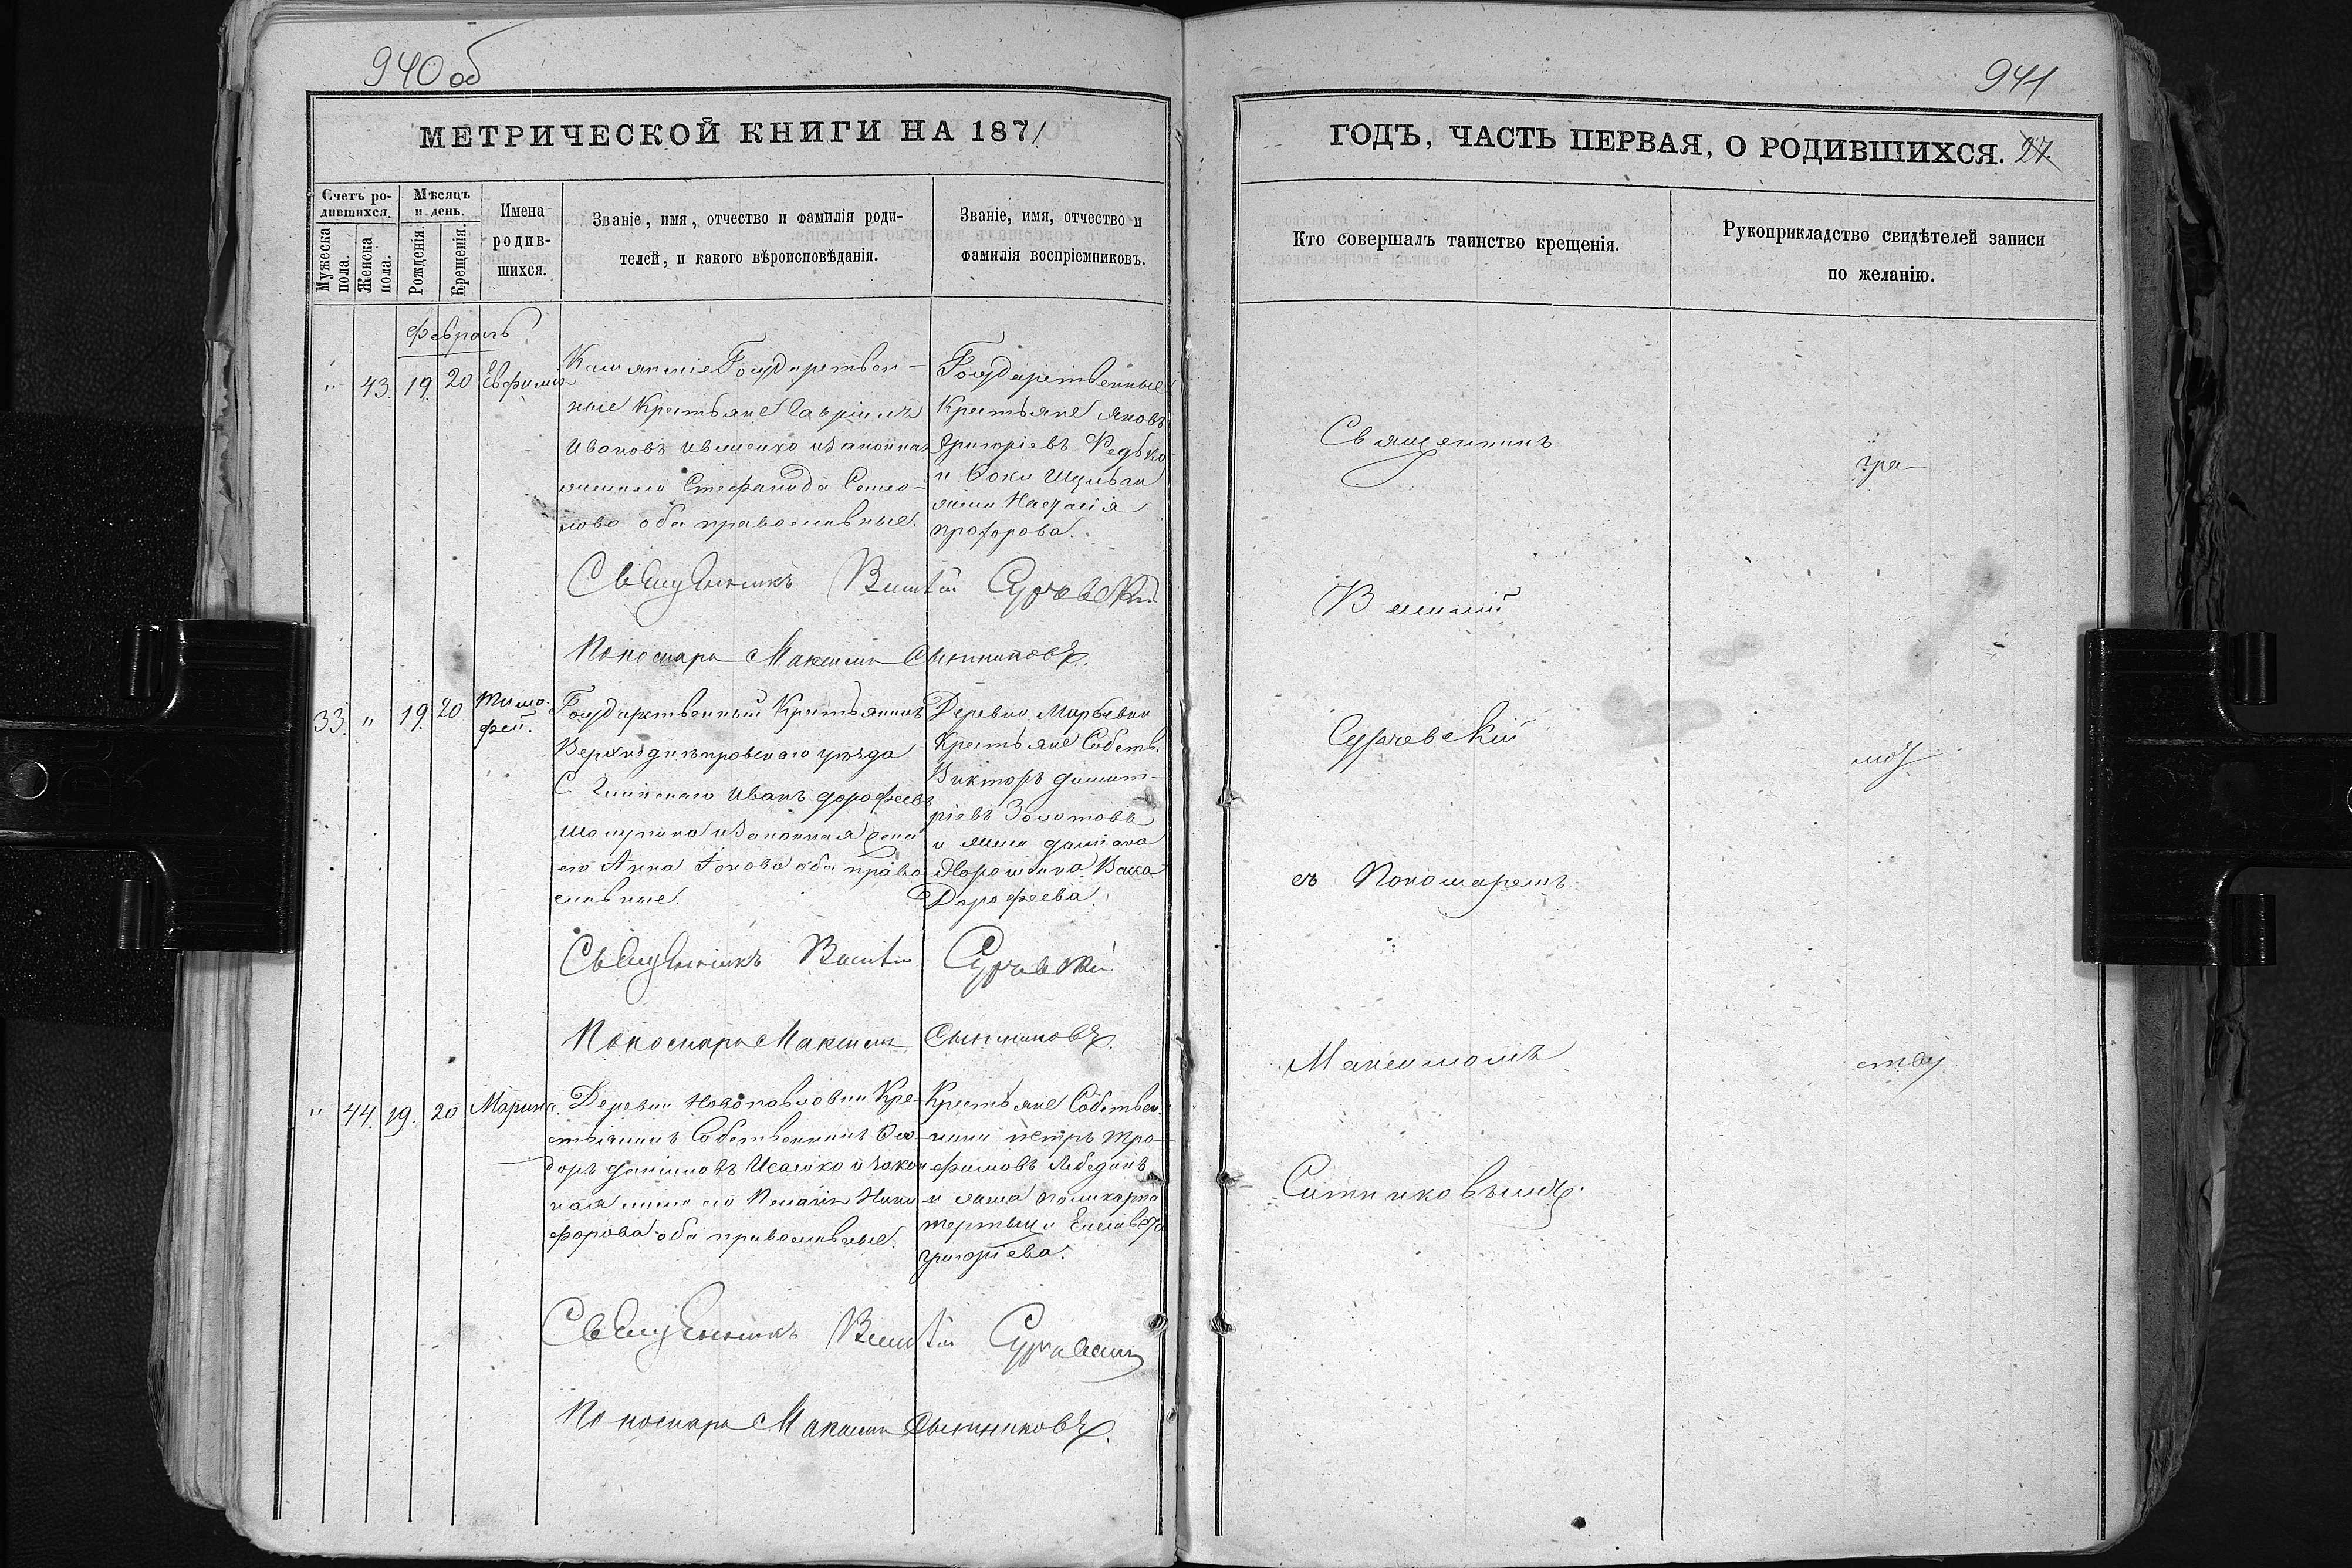 940 об
МЕТРИЧЕСКОЙ КНИГИ НА 1871
Счетъ ро-
дившихся.
Мужеска
пола.
Женска
пола.
Мѣсяцъ
и день.
Рожденія.
Крещенія.
Имена
родив-
шихся.
Званіе, имя, отчество и фамилія роди-
телей, и какого вѣроисповѣданія.
Званіе, имя, отчество и
фамилія воспріемниковъ.
Февраль
" 43. 19. 20 Евфимія
Государствен-
ные Крестьяне Гавріилъ
Ивановъ законная
Стефанида
оба православные.
Государственные
Крестьяне Яковъ
Григоріевъ Редько
и
Настасія
прохорова.
Священникъ Василій Сурчевскій
Пономарь Максимъ Сытниковъ.
33. " 19. 20 Тимо-
фей.
Государственный Крестьянинъ
Верхнеднѣпровскаго уѣзда
С. Иванъ дорофеевъ
законная жена
его Анна оба право
славные.
Деревни Марьевки
Крестьяне Собств.
Викторъ димит-
ріевъ Золотовъ
и
Васса
Дорофеева.
Священникъ Василій Сурчевскій
Пономарь Максимъ Сытниковъ.
" 44. 19. 20 Марина.
Деревни Новопавловки Кре-
стьянинъ Собственникъ Фео-
доръ даниловъ Исаенко и закон
ная жена его Пелагія Ники
форова оба православные.
Крестьяне Собствен-
ники петръ тро-
фимовъ Лебединъ
и поликарпа
Елисавета
григоріева.
Священникъ Василій Сурчевскій
Пономарь Максимъ Сытниковъ.
941
ГОДЪ, ЧАСТЬ ПЕРВАЯ, О РОДИВШИХСЯ. 27.
Кто совершалъ таинство крещенія.
Рукоприкладство свидѣтелей записи
по желанію.
Священникъ
гра-
Василій
Сурчевскій
мот
съ Пономаремъ
Максимомъ
ству
Ситниковымъ.